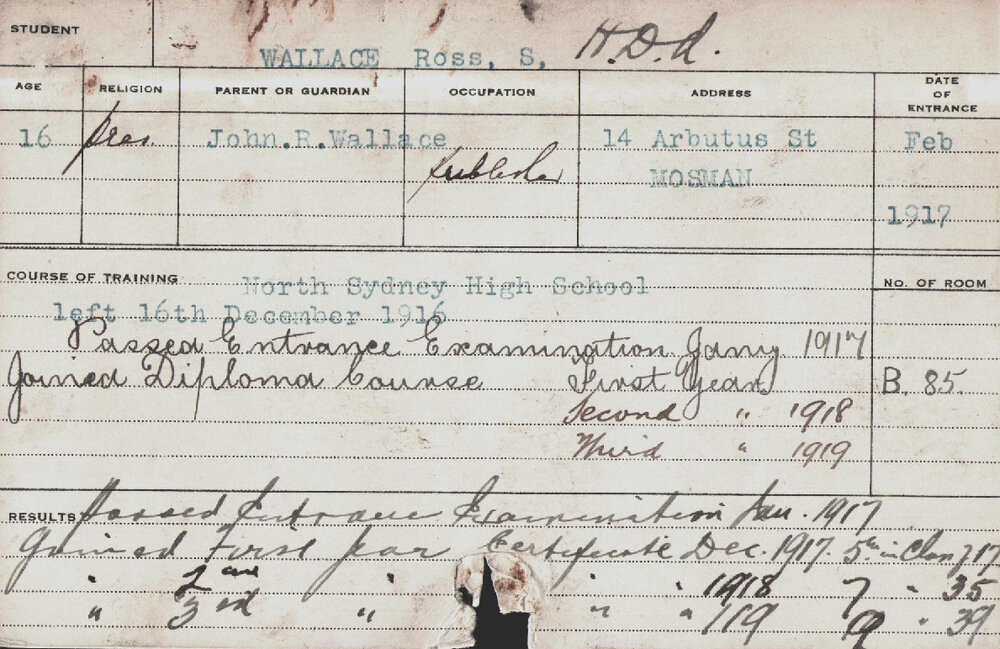 STUDENT
WALLACE Ross, S, H.D.A.
AGE RELIGION PARENT OR GUARDIAN OCCUPATION ADDRESS DATE OF ENTRANCE
16 Pres. John.R.Wallace Publisher 14 Arbutus St Feb
MOSMAN
1917
COURSE OF TRAINING North Sydney High School NO. OF ROOM
left 16th December 1916
Passed Entrance Examination Jany 1917
Joined Diploma Course First Year B. 85.
Second " 1918
Third " 1919
RESULTS Passed Entrance Examination Jan. 1917
Gained First Year Certificate Dec. 1917. 5th in Class of 17
" 2nd " " " 1918 7 " 35
" 3rd " " " 119 9 " 39